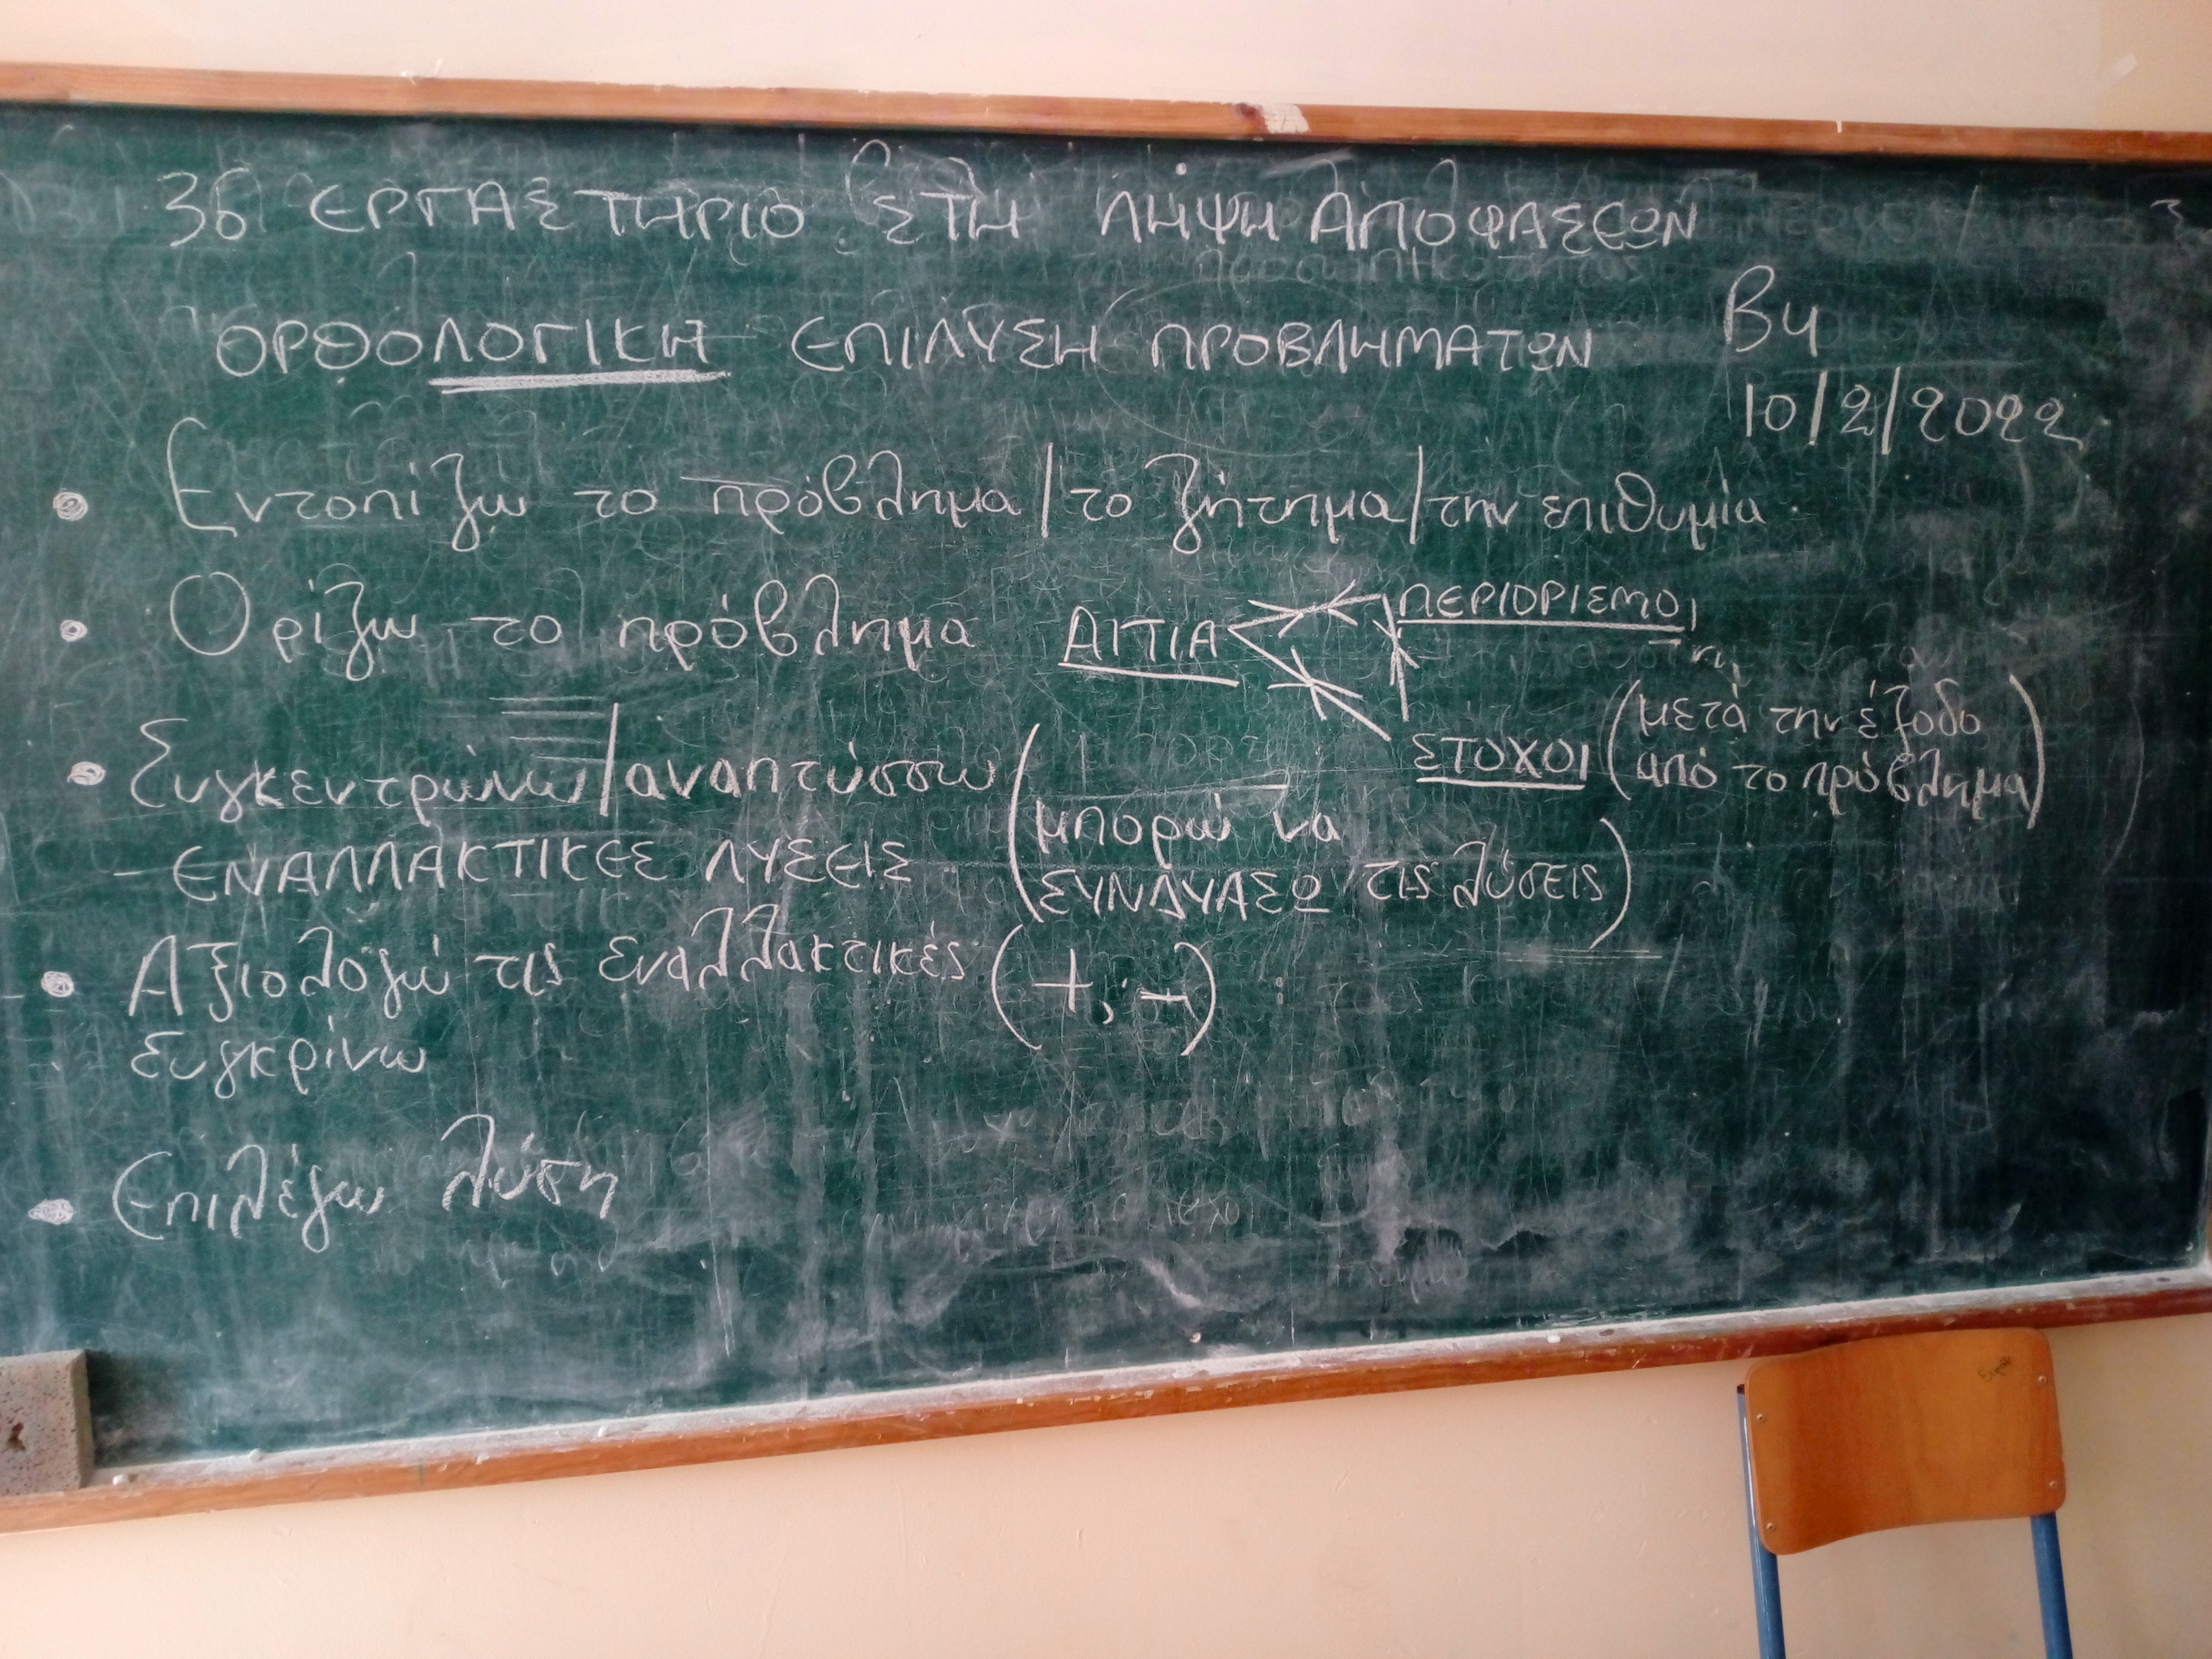 3δ ΕΡΓΑΣΤΗΡΙΟ ΣΤΗ ΛΗΨΗ ΑΠΟΦΑΣΕΩΝ
ΟΡΘΟΛΟΓΙΚΗ ΕΠΙΛΥΣΗ ΠΡΟΒΛΗΜΑΤΩΝ
Β4
10/2/2022
• Εντοπίζω το πρόβλημα/το ζήτημα/την επιθυμία
• Ορίζω το πρόβλημα ΑΙΤΙΑ ΠΕΡΙΟΡΙΣΜΟΙ
ΣΤΟΧΟΙ (μετά την έξοδο
από το πρόβλημα)
• Συγκεντρώνω/αναπτύσσω
- ΕΝΑΛΛΑΚΤΙΚΕΣ ΛΥΣΕΙΣ
(μπορώ να
ΣΥΝΔΥΑΣΩ τις λύσεις)
• Αξιολογώ τις εναλλακτικές (+, -)
Συγκρίνω
• Επιλέγω λύση